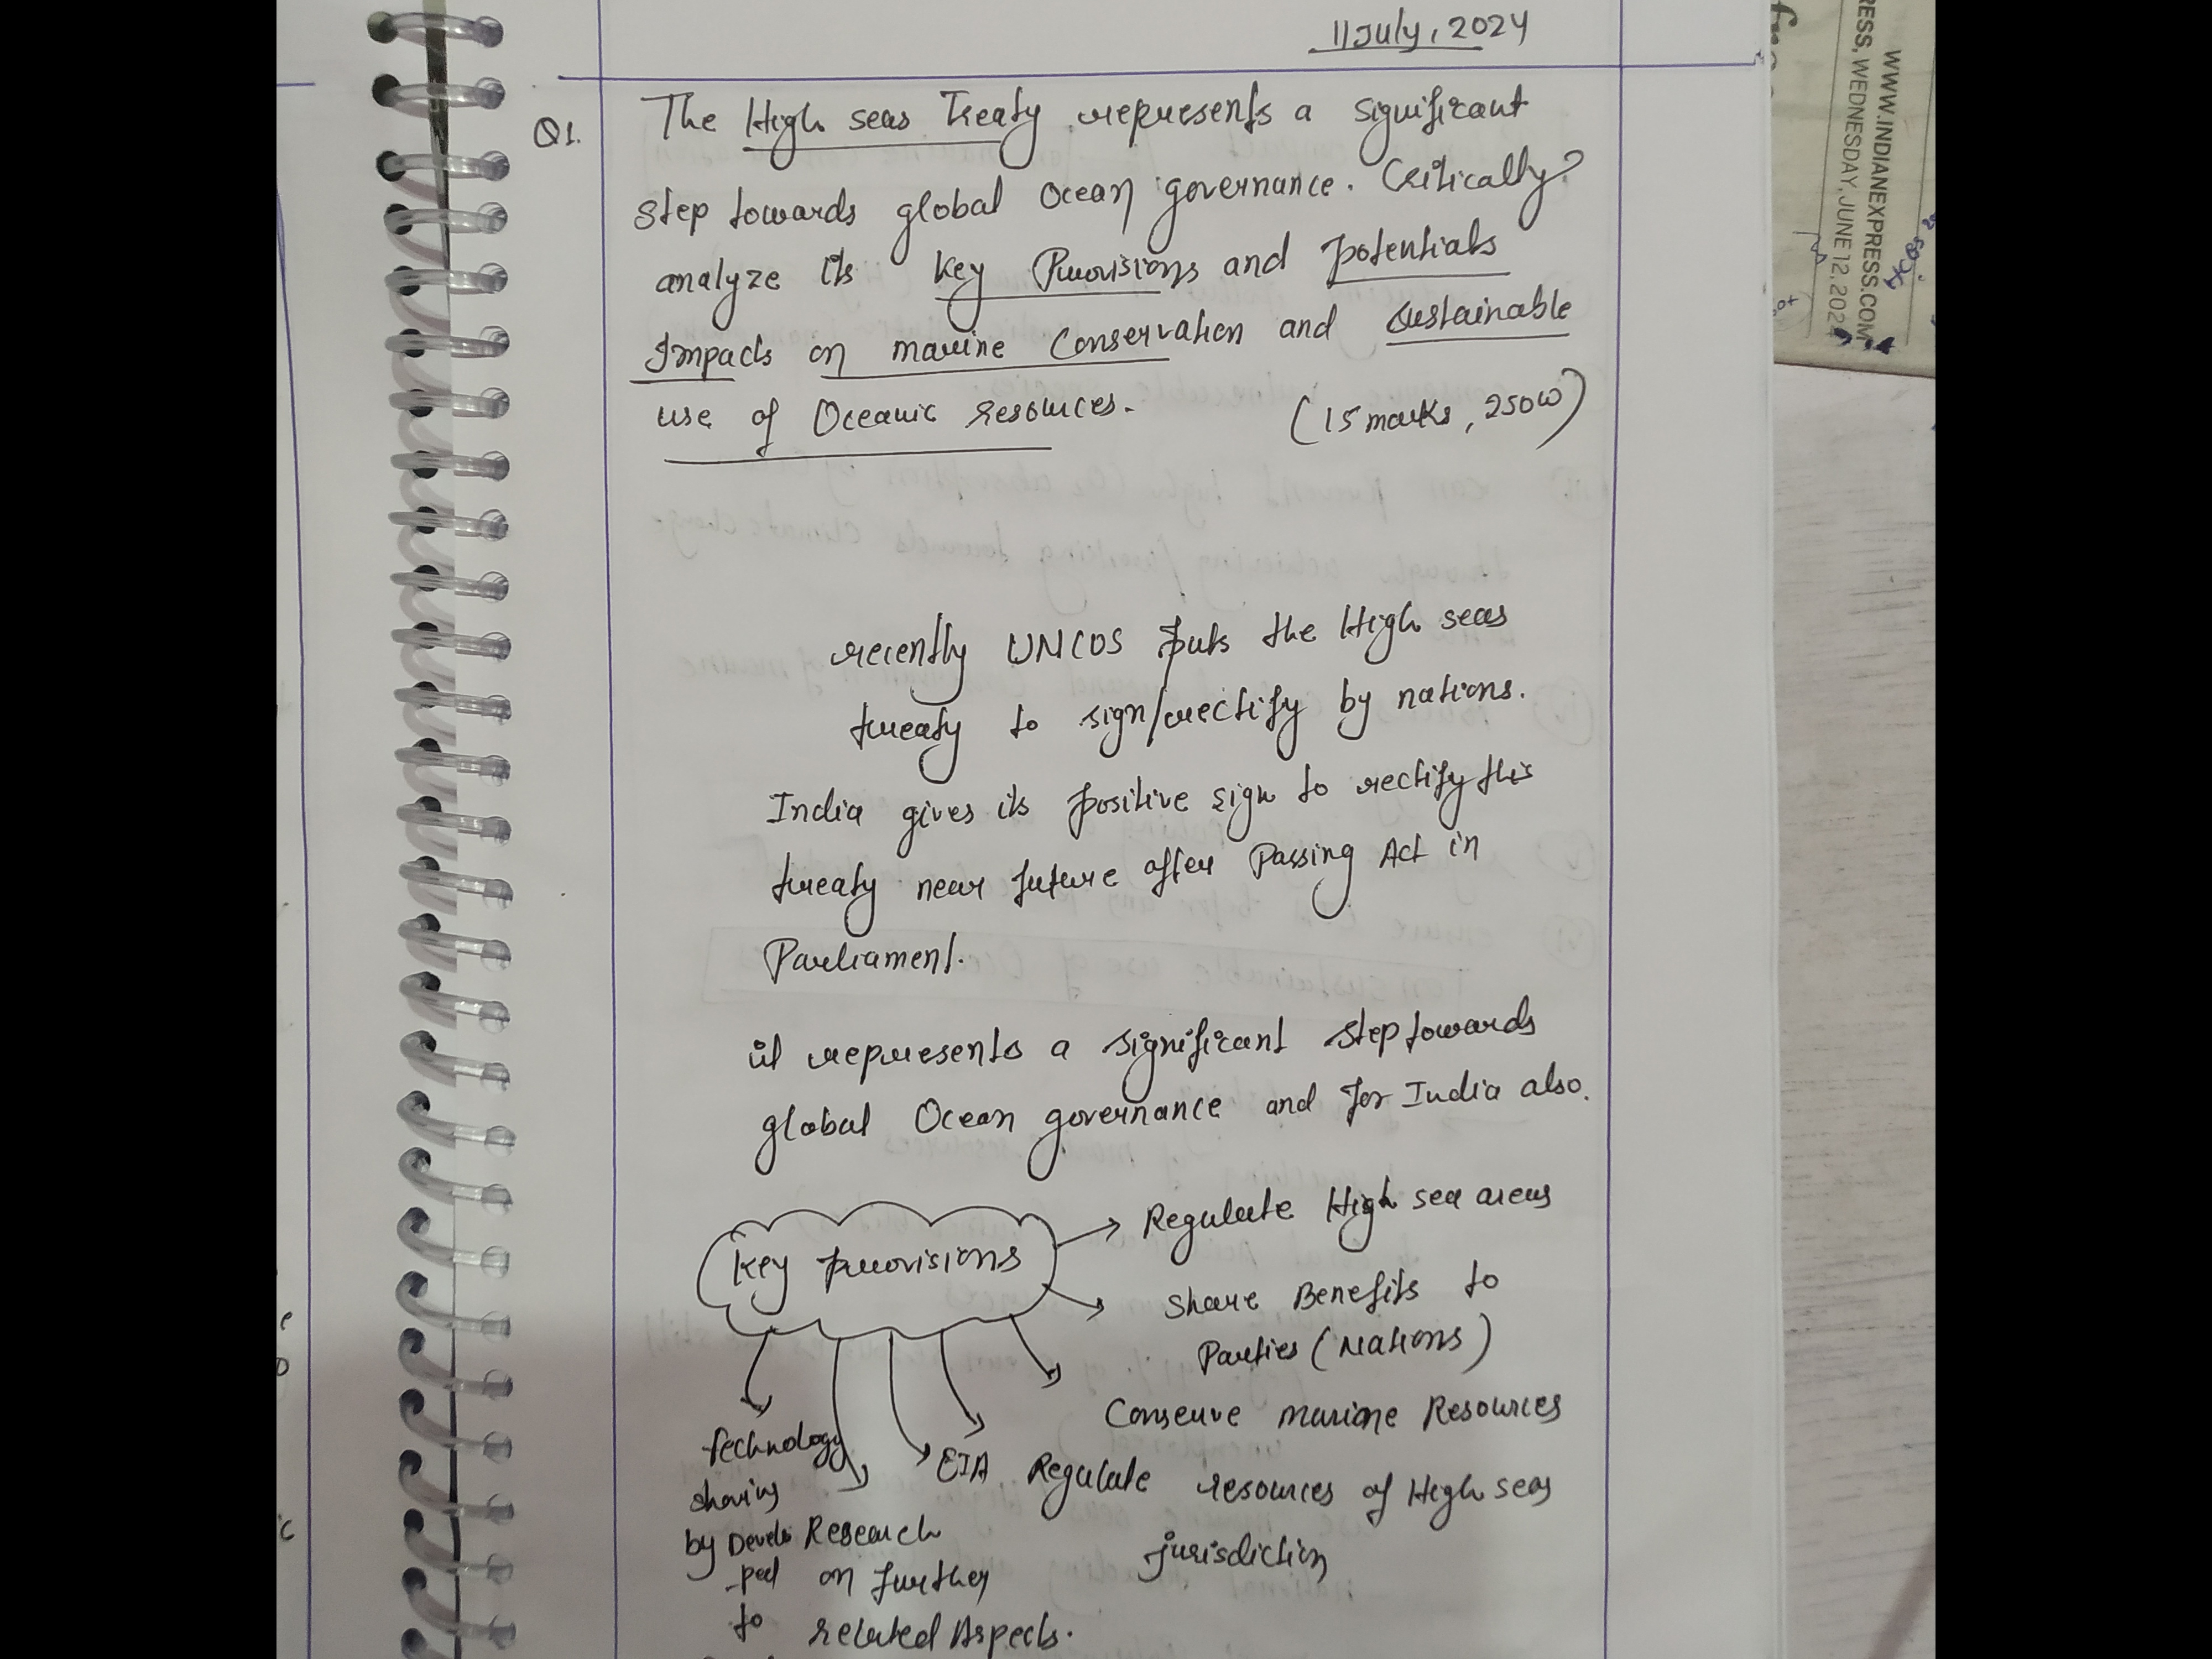 11 July, 2024
Q1.
The High seas Treaty represents a significant
step towards global Ocean governance. Critically
analyze its key Provisions and potentials
Impacts on marine Conservation and sustainable
use of Oceanic resources.
(15 marks, 250W)
recently UNCOS puts the High seas
treaty to sign/rectify by nations.
India gives its positive sign to rectify this
treaty near future after Passing Act in
Parliament.
it represents a significant step towards
global Ocean governance and for India also.
Key provisions
Regulate High sea areas
Share Benefits to
Parties (Nations)
Conserve marine Resources
Regulate resources of High seas
jurisdiction
EIA
Research
on further
related Aspects.
Technology
sharing
by Develo
-ped
to
WWW.INDIANEXPRESS.COM
RESS, WEDNESDAY, JUNE 12, 2024